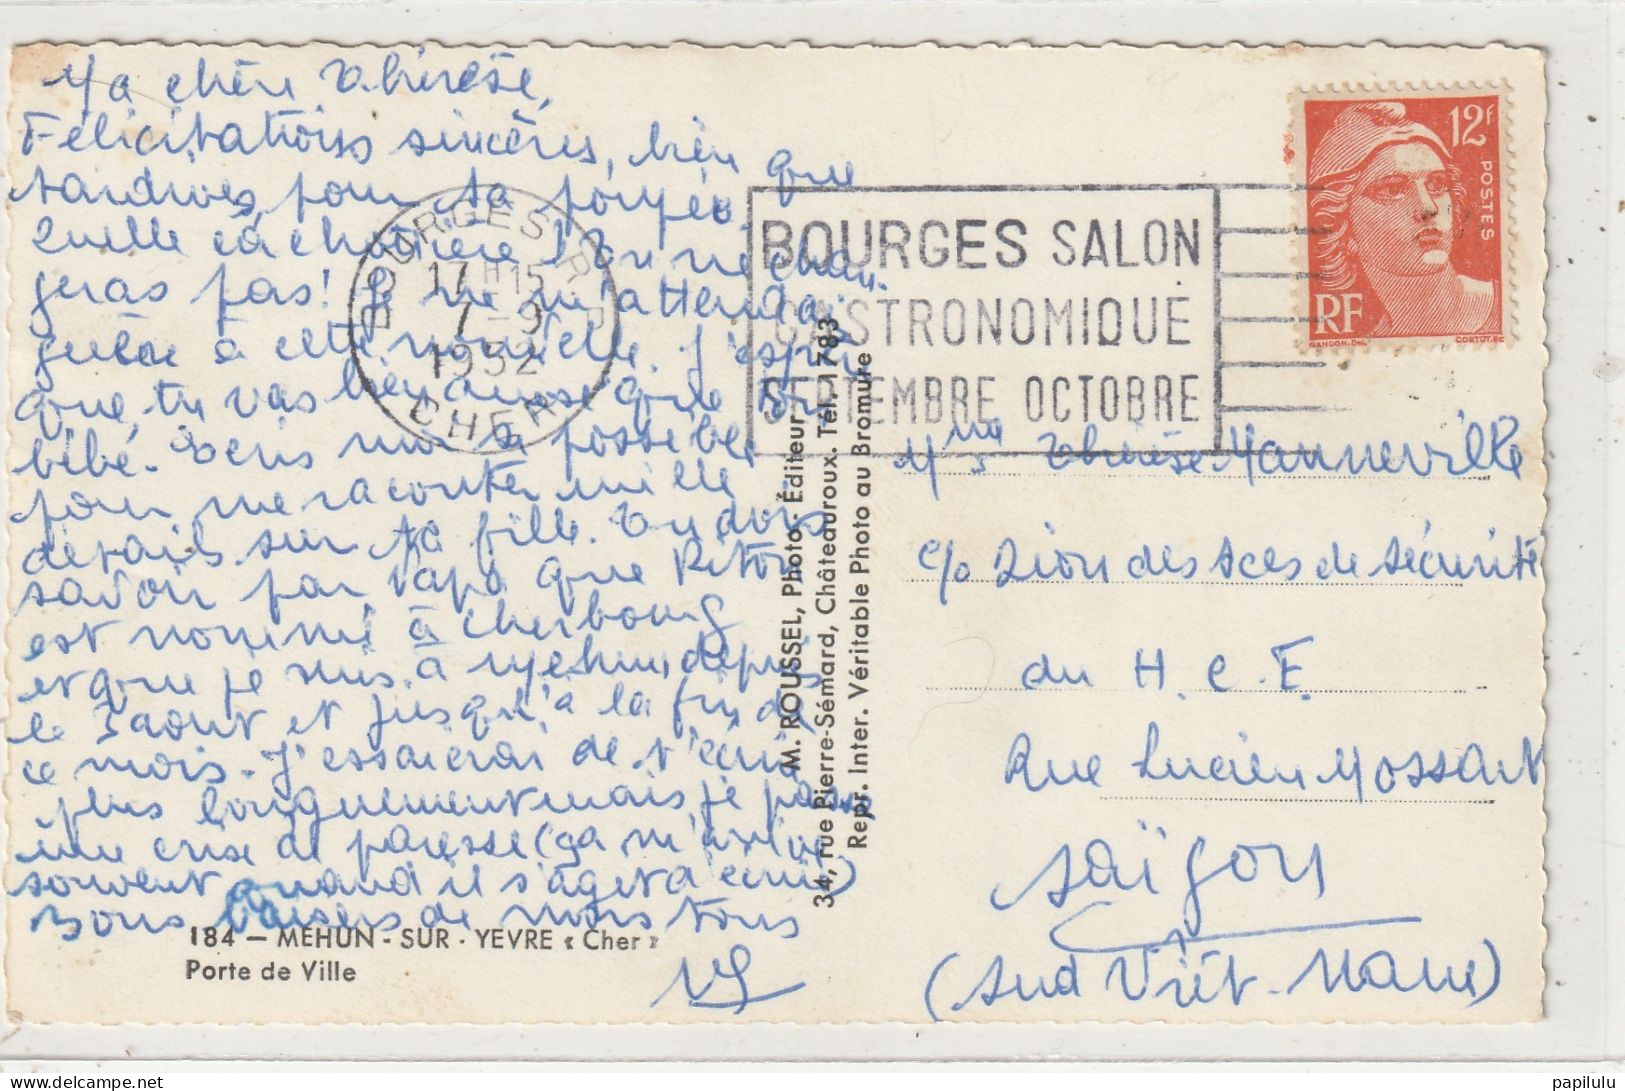 Ma chère Thérèse,
Félicitations sincères, bien que
tardives, pour ta poupée.
Quelle cachottière ! Tu ne chan-
geras pas ! Je ne m'attendais
guère à cette nouvelle. J'espère
que tu vas bien ainsi que ton
bébé. Ecris moi si possible
pour me raconter mille
détails sur ta fille. Tu dois
savoir par Papa que
est nommé à Cherbourg
et que je suis à Mehun, depuis
le 3 août et jusqu'à la fin de
ce mois. J'essaierai de t'écrire
plus longuement mais je passe
une crise de paresse (ça m'arrive
souvent quand il s'agit d'écrire)
Bons baisers de nous tous
184 — MEHUN - SUR - YEVRE « Cher »
Porte de Ville
BOURGES R.P.
17 H 15
7 - 9
1952
CHER
BOURGES SALON
GASTRONOMIQUE
SEPTEMBRE OCTOBRE
12F
POSTES
RF
GANDON.DEL
CORTOT.SC
M. ROUSSEL, Photo. Éditeur
34, rue Pierre-Sémard, Châteauroux. Tél. 1783
Repr. Inter. Véritable Photo au Bromure
Thérèse Manneville
c/o Dion des Sces de Sécurité
du H. C. F.
Rue Lucien Mossart
Saïgon
(Sud Viêt-Nam)
papilulu